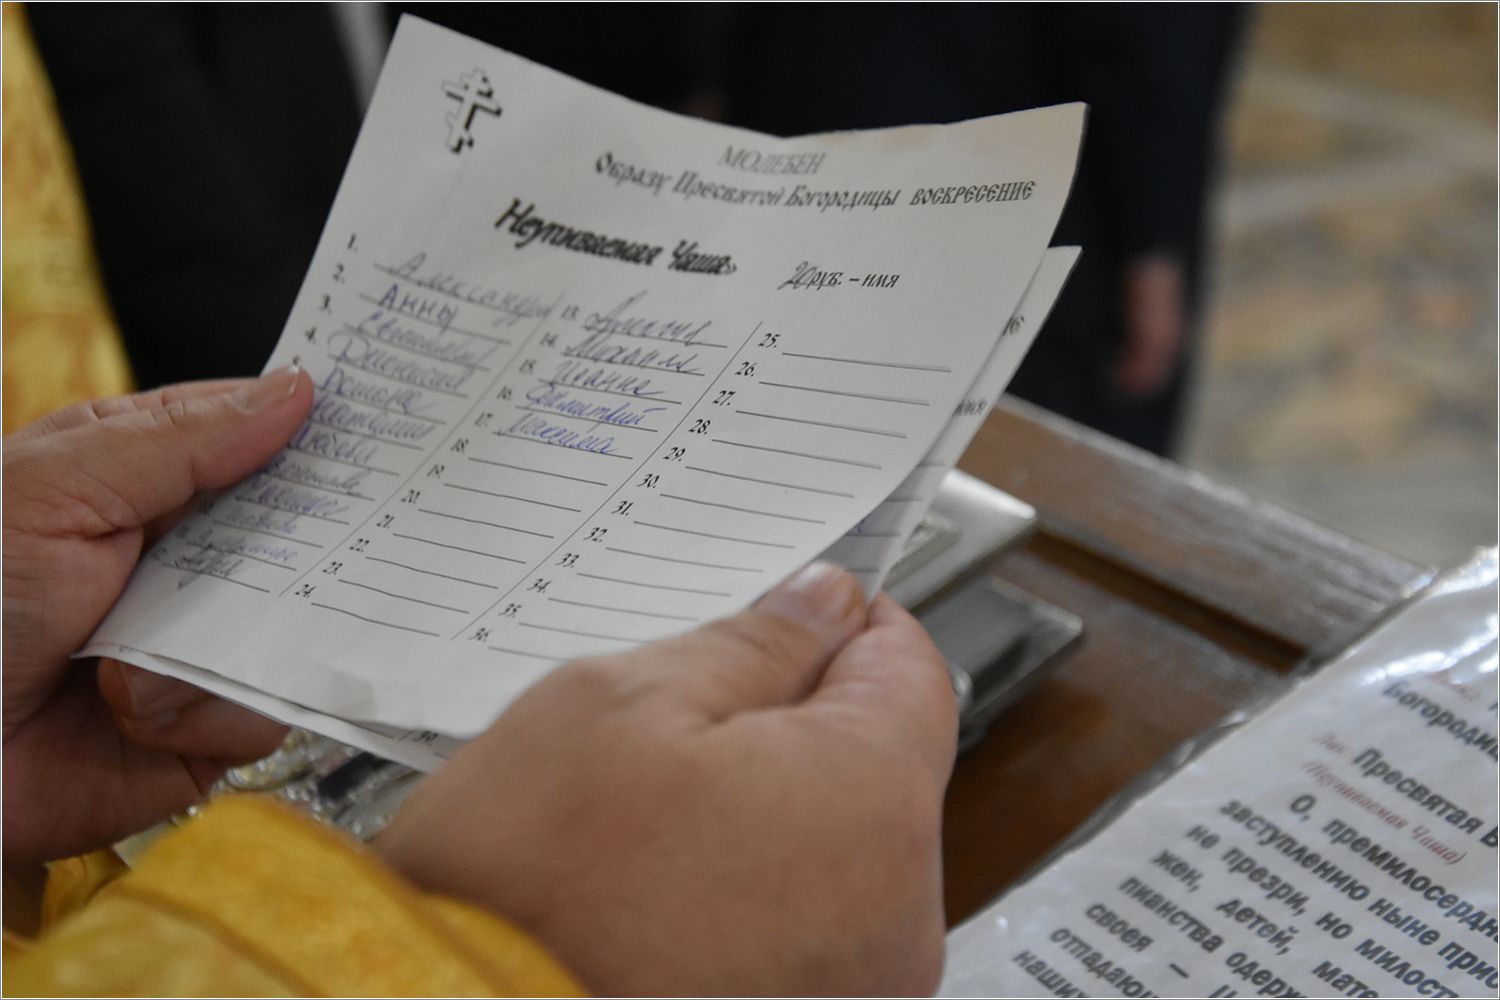 МОЛЕБЕН
Образу Пресвятой Богородицы ВОСКРЕСЕНИЕ
Неупиваемая Чаша»
20 руб. – имя
1. Александра
2. Анны
3.
4. Дионисия
5. Романа
Наталии
13. Алексия
14. Михаила
15. Иоанна
16. Димитрий
17. Максима
18.
19.
20.
21.
22.
23.
24.
25.
26.
27.
28.
29.
30.
31.
32.
33.
34.
35.
36.
39.
Богородиц
Пресвятая Б
(Неупиваемая Чаша)
О, премилосердн
заступлению ныне прис
не презри, но милост
жен, детей, мате
пианства одерж
своея –
отпадаю
наши